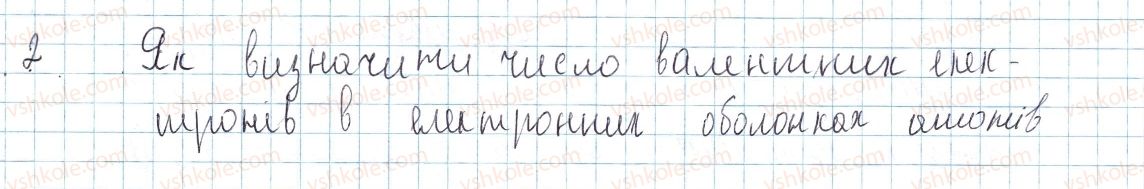 2. Як визначити число валентних елек-
тронів в електронних оболонках атомів